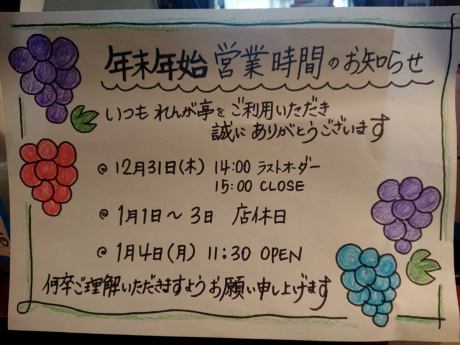 年末年始 営業時間のお知らせ
いつも れんが亭を ご利用いただき
誠に ありがとうございます
@ 12月31日(木) 14:00 ラストオーダー
15:00 CLOSE
@ 1月1日〜3日 店休日
@ 1月4日(月) 11:30 OPEN
何卒ご理解いただきますようお願い申し上げます